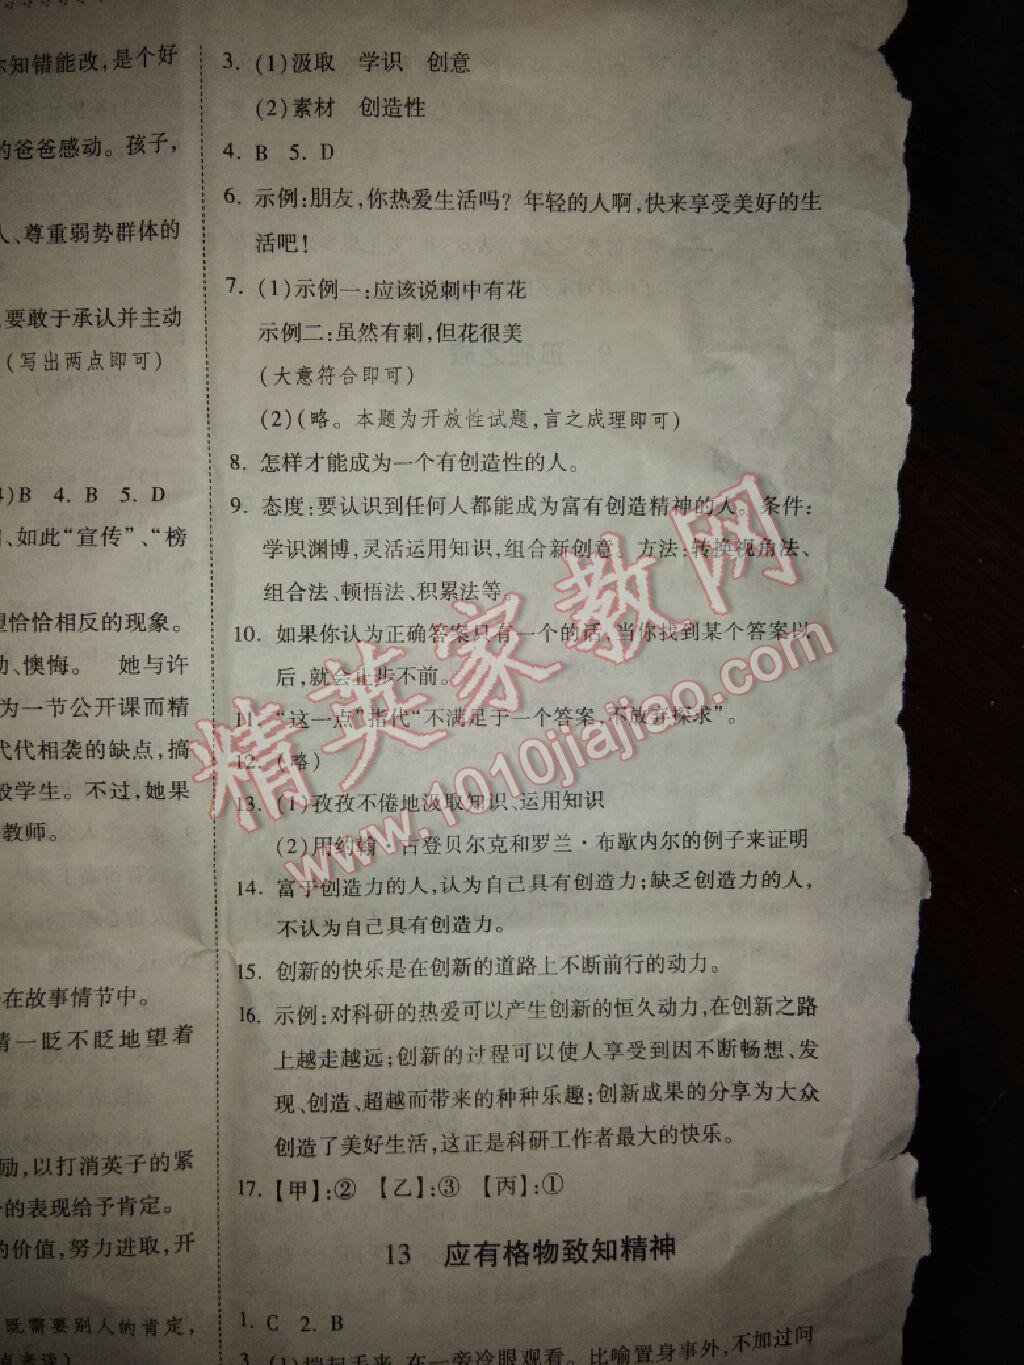 你知错能改,是个好
的爸爸感动。孩子,
人、尊重弱势群体的
要敢于承认并主动
(写出两点即可)
4)B 4. B 5. D
、如此“宣传”、“榜
望恰恰相反的现象。
、懊悔。 她与许
为一节公开课而精
代代相袭的缺点,搞
学生。不过,她果
教师。
在故事情节中。
睛一眨不眨地望着
励,以打消英子的紧
的表现给予肯定。
的价值,努力进取,开
既需要别人的肯定,
3. (1)汲取 学识 创意
(2)素材 创造性
4. B 5. D
6. 示例:朋友,你热爱生活吗?年轻的人啊,快来享受美好的生
活吧!
7. (1)示例一:应该说刺中有花
示例二:虽然有刺,但花很美
(大意符合即可)
(2)(略。本题为开放性试题,言之成理即可)
8. 怎样才能成为一个有创造性的人。
9. 态度:要认识到任何人都能成为富有创造精神的人。条件:
学识渊博,灵活运用知识,组合新创意。方法:转换视角法、
组合法、顿悟法、积累法等。
10. 如果你认为正确答案只有一个的话,当你找到某个答案以
后,就会止步不前。
11. “这一点”指代“不满足于一个答案,不放弃探求”。
12. (略)
13. (1)孜孜不倦地汲取知识、运用知识
(2)用约翰·古登贝尔克和罗兰·布歇内尔的例子来证明
14. 富于创造力的人,认为自己具有创造力;缺乏创造力的人,
不认为自己具有创造力。
15. 创新的快乐是在创新的道路上不断前行的动力。
16. 示例:对科研的热爱可以产生创新的恒久动力,在创新之路
上越走越远;创新的过程可以使人享受到因不断畅想、发
现、创造、超越而带来的种种乐趣;创新成果的分享为大众
创造了美好生活,这正是科研工作者最大的快乐。
17. 【甲】:② 【乙】:③ 【丙】:①
13 应有格物致知精神
1. C 2. B
3. (1)揣起手来,在一旁冷眼观看。比喻置身事外,不加过问
精英家教网
www.1010jiajiao.com